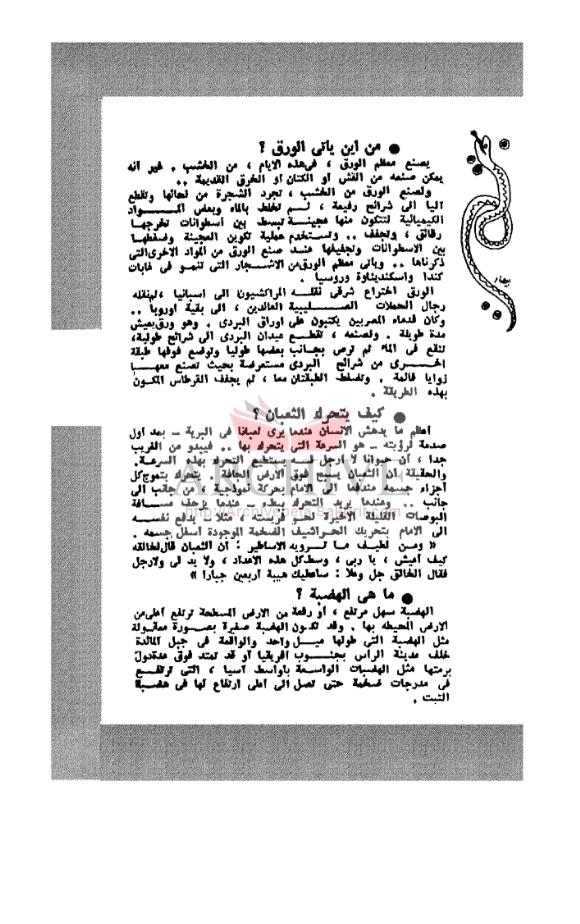 ● من اين ياتى الورق ؟
يصنع معظم الورق ، فى هذه الايام ، من الخشب . غير انه
يمكن صنعه من القش او الكتان او الخرق القديمة ..
ولصنع الورق من الخشب ، تجرد الشجرة من لحائها وتقطع
اليا الى شرائح رفيعة ، ثم تخلط بالماء وبعض المواد
الكيميائية لتتكون منها عجينة تبسط بين اسطوانات تخرجها
رقائق ، وتجفف .. وتستخدم عملية تكوين العجينة وضغطها
بين الاسطوانات وتجفيفها عند صنع الورق من المواد الاخرى التى
ذكرناها .. وياتى معظم الورق من الاشجار التى تنمو فى غابات
كندا واسكنديناوة وروسيا .
الورق اختراع شرقى نقله المراكشيون الى اسبانيا ، لينقله
رجال الحملات الصليبية العائدين ، الى بقية اوروبا ..
وكان قدماء المصريين يكتبون على اوراق البردى . وهو ورق يعيش
مدة طويلة . ولصنعه ، تقطع عيدان البردى الى شرائح طولية ،
تنقع فى الماء ثم ترص بجانب بعضها طوليا وتوضع فوقها طبقة
اخرى من شرائح البردى مستعرضة بحيث تصنع معها
زوايا قائمة . وتضغط الطبقتان معا ، ثم يجفف القرطاس المكون
بهذه الطريقة .
● كيف يتحرك الثعبان ؟
اعظم ما يدهش الانسان عندما يرى ثعبانا فى البرية – بعد اول
صدمة لرؤيته – هو السرعة التى يتحرك بها .. فيبدو من الغريب
جدا ، أن حيوانا لا ارجل له يستطيع التحرك بهذه السرعة .
والحقيقة ان الثعبان يسبح فوق الارض الجافة . يتحرك بتموج كل
اجزاء جسمه مندفعا الى الامام بحركة نموذجية . من جانب الى
جانب .. وعندما يريد التحرك ببطء – عندما يزحف مسافة
البوصات القليلة الاخيرة نحو فريسته ، مثلا – يدفع نفسه
الى الامام بتحريك الحراشيف الضخمة الموجودة اسفل جسمه .
« ومن لطيف ما ترويه الاساطير : أن الثعبان قال لخالقه
كيف أعيش ، يا ربى ، وسط كل هذه الاعداد ، ولا يد لى ولا رجل
فقال الخالق جل وعلا : ساعطيك هيبة أربعين جبارا »
● ما هى الهضبة ؟
الهضبة سهل مرتفع ، أو رقعة من الارض المسطحة ترتفع أعلى من
الارض المحيطة بها . وقد تكون الهضبة صغيرة بصورة معقولة
مثل الهضبة التى طولها ميل واحد والواقعة فى جبل المائدة
خلف مدينة الراس بجنوب أفريقيا أو قد تمتد فوق عدة دول
برمتها مثل الهضبات الواسعة بأواسط آسيا ، التى ترتفع
فى مدرجات ضخمة حتى تصل الى أعلى ارتفاع لها فى هضبة
التبت .
ARCHIVE